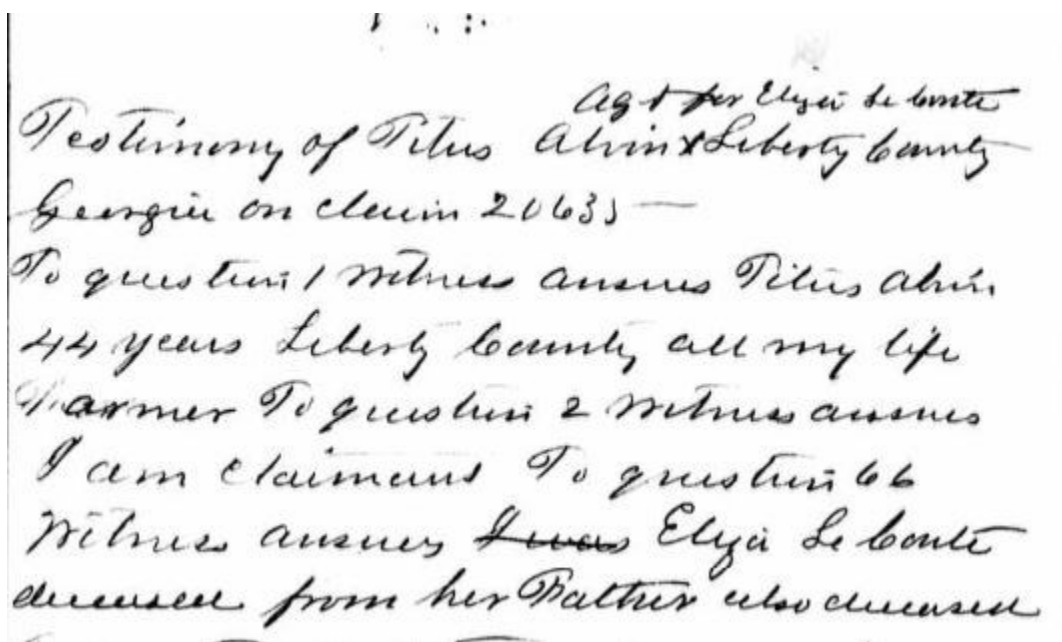 Agt for Eliza Le Conte
Testimony of Titus Alvin x Liberty County
Georgia on claim 20635 —
To question 1 Witness answers Titus Alvin
44 years Liberty County all my life
Farmer To question 2 Witness answers
I am Claimant To question 66
Witness answers I was Eliza Le Conte
deceased from her Father also deceased